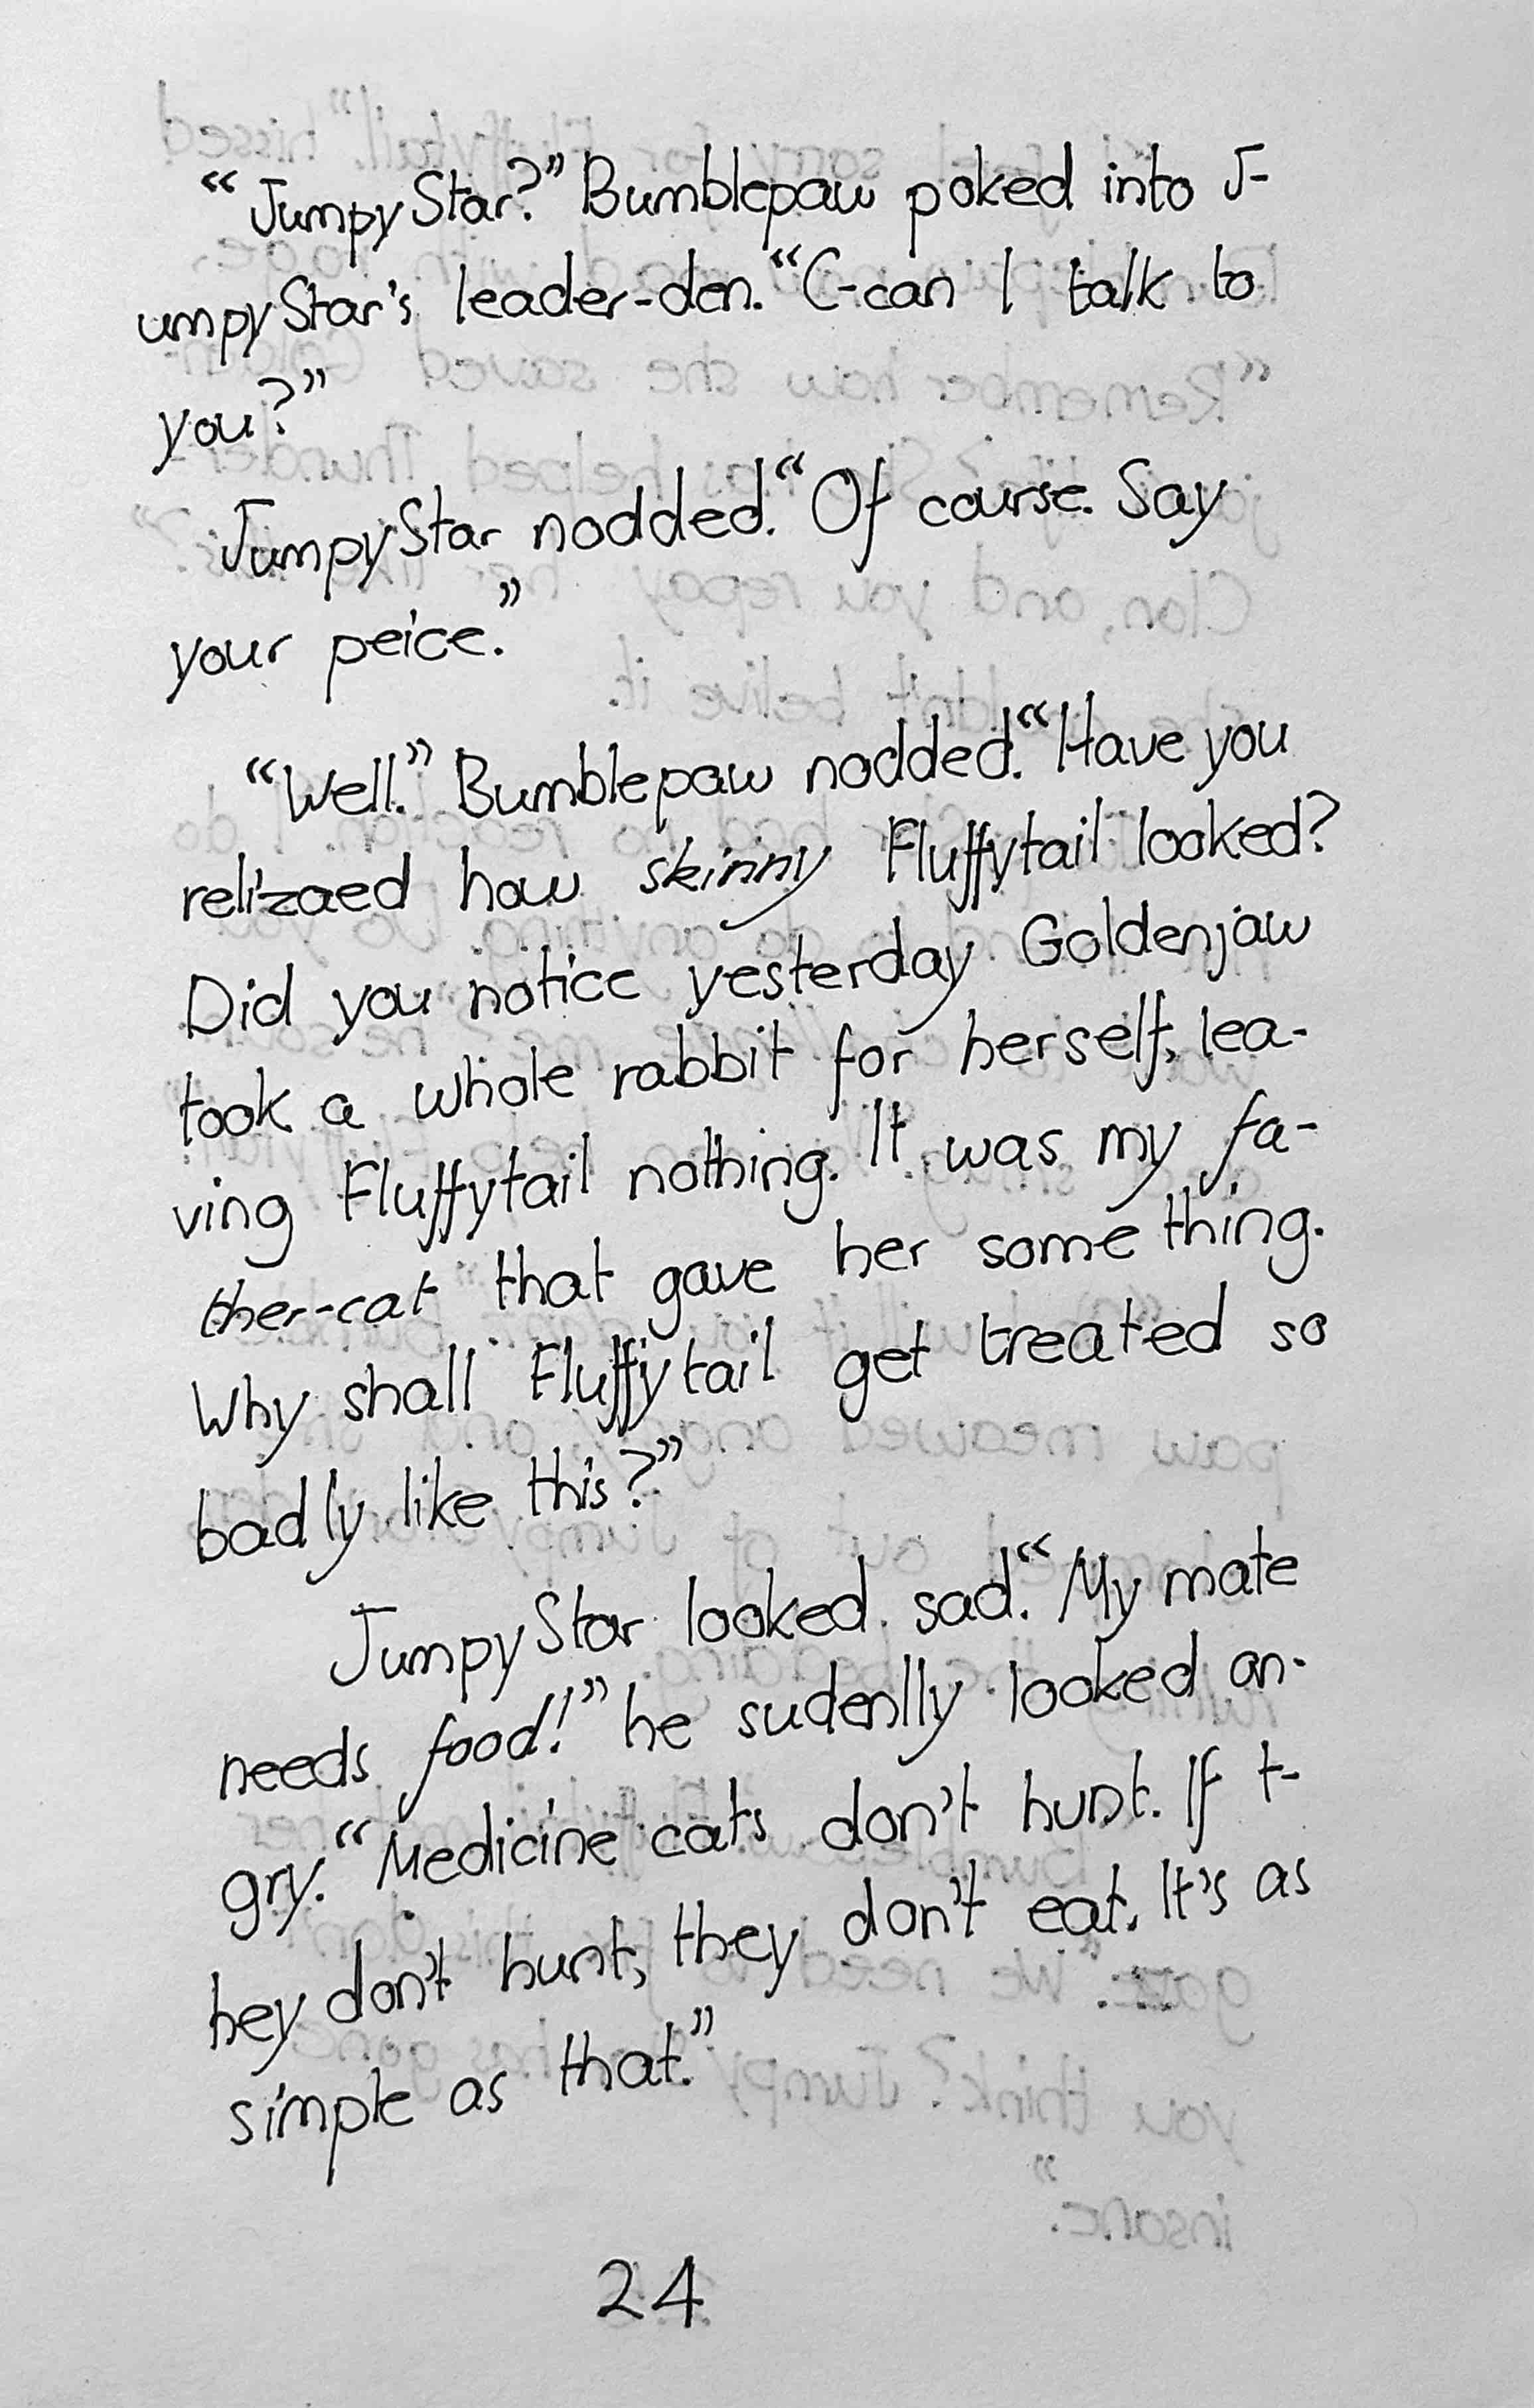 “JumpyStar?” Bumblepaw poked into J-
umpyStar's leader-den. “C-can I talk to
you?”
JumpyStar nodded. “Of course. Say
your peice.”
“Well.” Bumblepaw nodded. “Have you
relizaed how skinny Fluffytail looked?
Did you notice yesterday Goldenjaw
took a whole rabbit for herself, lea-
ving Fluffytail nothing. It was my fa-
ther-cat that gave her something.
Why shall Fluffytail get treated so
badly like this?”
JumpyStar looked sad. “My mate
needs food!” he sudenlly looked an-
gry. “Medicine cats don't hunt. If t-
hey don't hunt, they don't eat. It's as
simple as that.”
24